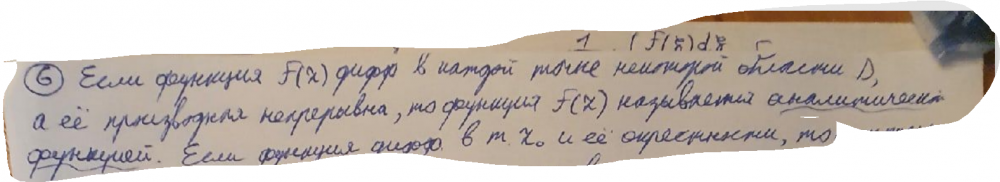 1 ∫ f(z)dz
⑥ Если функция f(z) дифф в каждой точке некоторой области D,
а её производная непрерывна, то функция f(z) называется аналитической
функцией. Если функция дифф. в т. z₀ и её окрестности, то